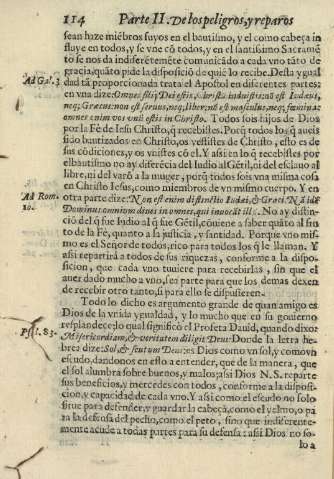 114 Parte II. De los peligros, y reparos
sean haze miẽbros suyos en el bautismo, y el como cabeça in
fluye en todos, y se vne cõ todos, y en el santissimo Sacramẽ
to se nos da indiferẽtemẽte comunicãdo a cada vno tãto de
gracia, quãto pide la disposiciõ de quiẽ lo recibe. Desta ygual
Ad Gal. 3
dad tã proporcionada trata el Apostol en diferentes partes;
en vna dize: Omnes filij Dei estis, Christũ induistis: nõ est Iudæus,
neq; Græcus: non est seruus, neq; liber: nõ est masculus, neq; fœmina:
omnes enim vos vnũ estis in Christo. Todos sois hijos de Dios
por la Fè de Iesu Christo, q̃ recebistes. Porq̃ todos los q̃ aueis
sido bautizados en Christo, os vestistes de Christo, esto es de
sus cõdiciones, y os vnistes cõ el. Y assi en lo q̃ recebistes por
el bautismo no ay diferẽcia del Iudio al Gẽtil, ni del esclauo al
libre, ni del varõ a la muger, porq̃ todos sois vna misma cosa
en Christo Iesus, como miembros de vn mismo cuerpo. Y en
Ad Rom.
10.
otra parte dize: Non est enim distinctio Iudæi, & Græci. Nã idẽ
Dominus omnium diues in omnes, qui inuocãt illũ. No ay distin-
ciõ del q̃ fue Iudio al q̃ fue Gẽtil, cõuiene a saber quãto al fru
to de la Fè, quanto a la justicia, y santidad. Porque vno mis-
mo es el Señor de todos, rico para todos los q̃ le llaman. Y
assi repartirà a todos de sus riquezas, conforme a la dispo-
sicion, que cada vno tuuiere para recebirlas, sin que el
auer dado mucho a vno, sea parte para que los demas dexen
de recebir otro tanto, si para ello se dispusieren.
Todo lo dicho es argumento grande de quan amigo es
Dios de la vnida ygualdad, y lo mucho que en su gouierno
resplandece; lo qual significò el Profeta Dauid, quando dixo:
Psal. 83.
Misericordiam, & veritatem diligit Deus: Donde la letra he-
brea dize: Sol, & scutum Deus: es Dios como vn sol, y como vn
escudo, dandonos en esto a entender, que de la manera, que
el sol alumbra sobre buenos, y malos; assi Dios N. S. reparte
sus beneficios, y mercedes con todos, conforme a la disposi-
cion, y capacidad de cada vno. Y assi como el escudo no solo
sirue para defender, y guardar la cabeça, como el yelmo, o pa
ra la defensa del pecho, como el peto, sino que indiferente-
mente acude a todas partes para su defensa: assi Dios no so-
lo a